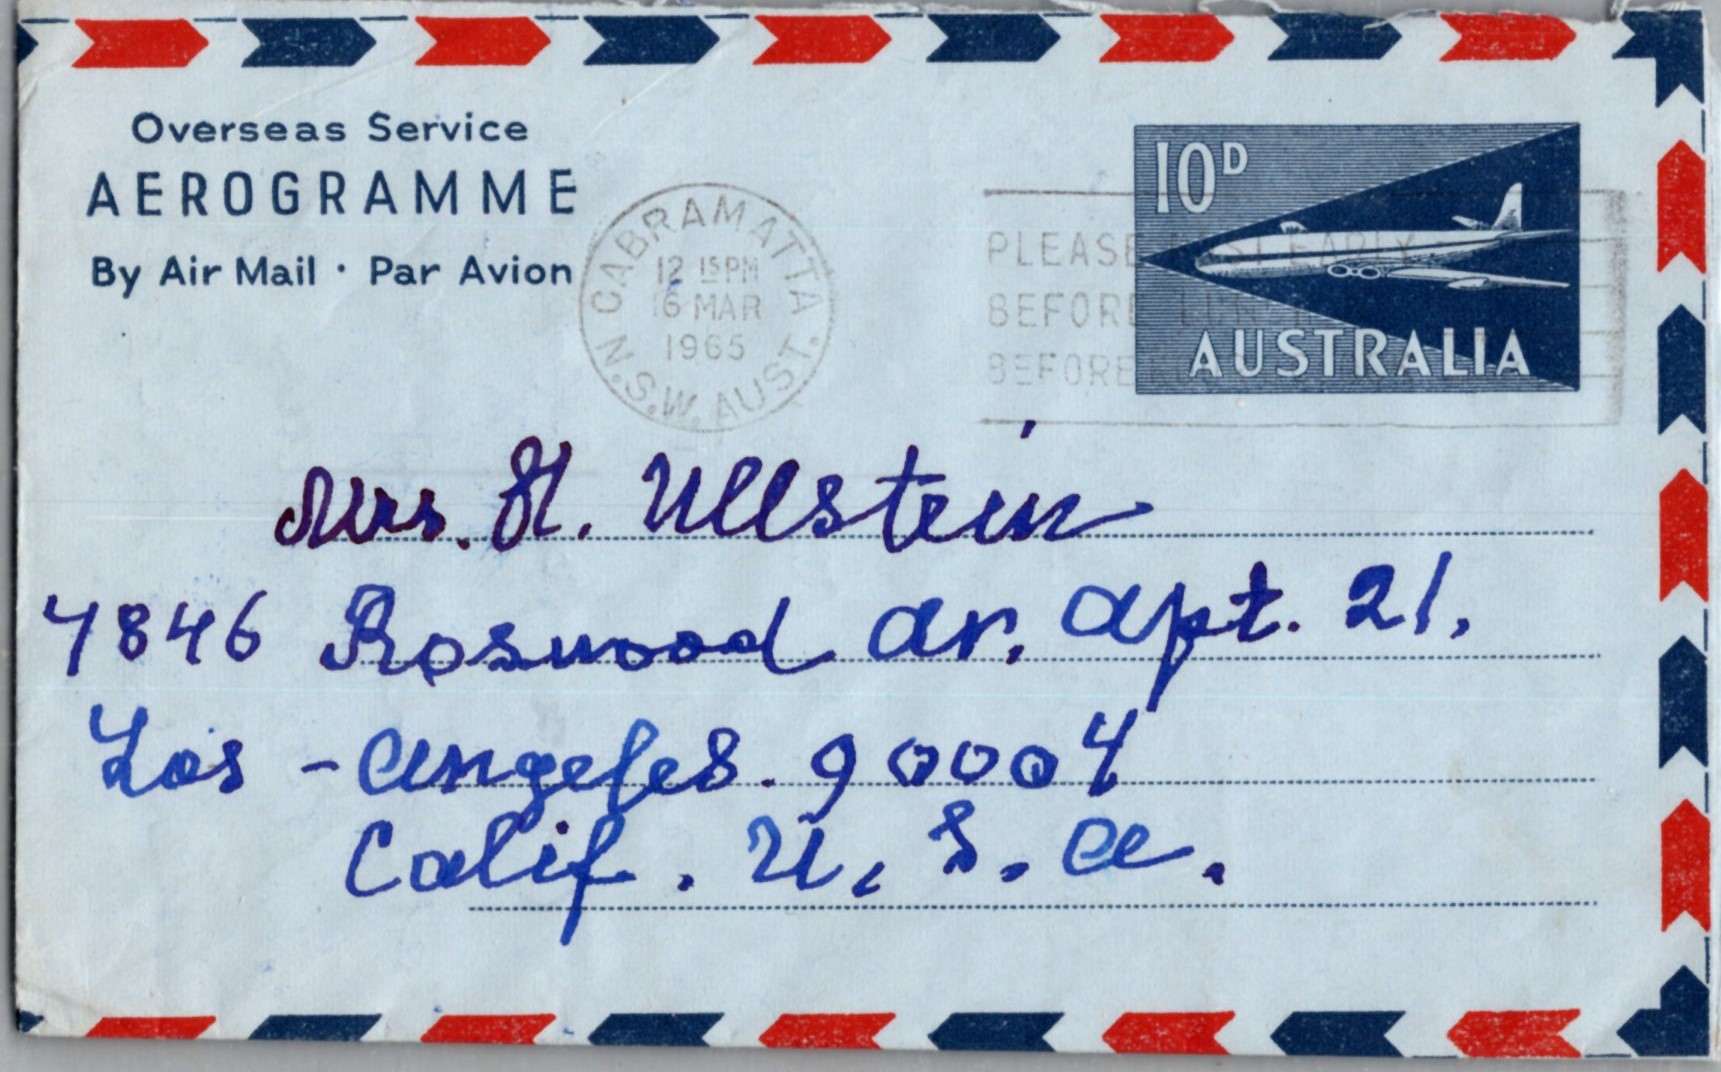 Overseas Service
AEROGRAMME
By Air Mail · Par Avion
CABRAMATTA
12 15PM
16 MAR
1965
N.S.W. AUST.
PLEASE POST EARLY
BEFORE LUNCH
BEFORE
10D
AUSTRALIA
Mrs. H. Ullstein
4846 Roswood av. apt. 21.
Los - Angeles. 90004
Calif. U. S. A.